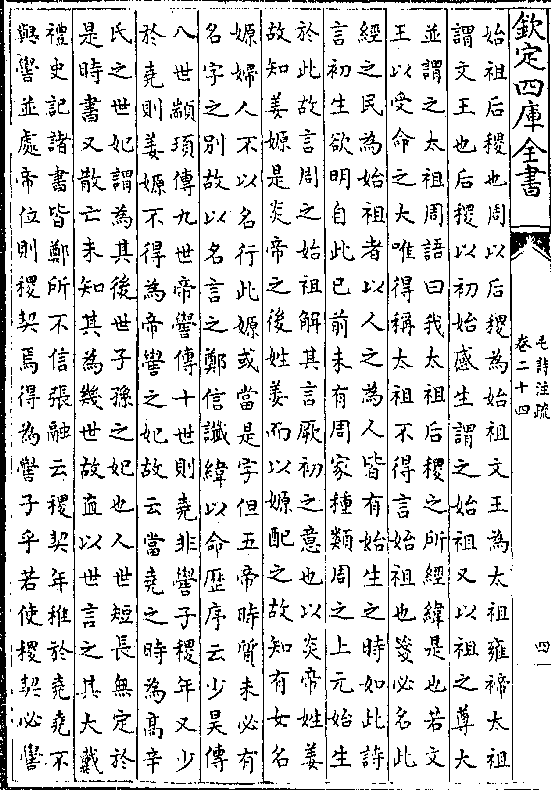 欽定四庫全書
毛詩注疏
卷二十四
四
始祖后稷也周以后稷為始祖文王為太祖雍禘太祖
謂文王也后稷以初始感生謂之始祖又以祖之尊大
並謂之太祖周語曰我太祖后稷之所經緯是也若文
王以受命之大唯得稱太祖不得言始祖也爰必名此
經之民為始祖者以人之為人皆有始生之時如此詩
言初生欲明自此已前未有周家種類周之上元始生
於此故言周之始祖解其言厥初之意也以炎帝姓姜
故知姜嫄是炎帝之後姓姜而以嫄配之故知有女名
嫄婦人不以名行此嫄或當是字但五帝時質未必有
名字之別故以名言之鄭信讖緯以命歴序云少昊傳
八世顓頊傳九世帝嚳傳十世則堯非嚳子稷年又少
於堯則姜嫄不得為帝嚳之妃故云當堯之時為高辛
氏之世妃謂為其後世子孫之妃也人世短長無定於
是時書又散亡未知其為幾世故直以世言之其大戴
禮史記諸書皆鄭所不信張融云稷契年稚於堯堯不
與嚳並處帝位則稷契焉得為嚳子乎若使稷契必嚳